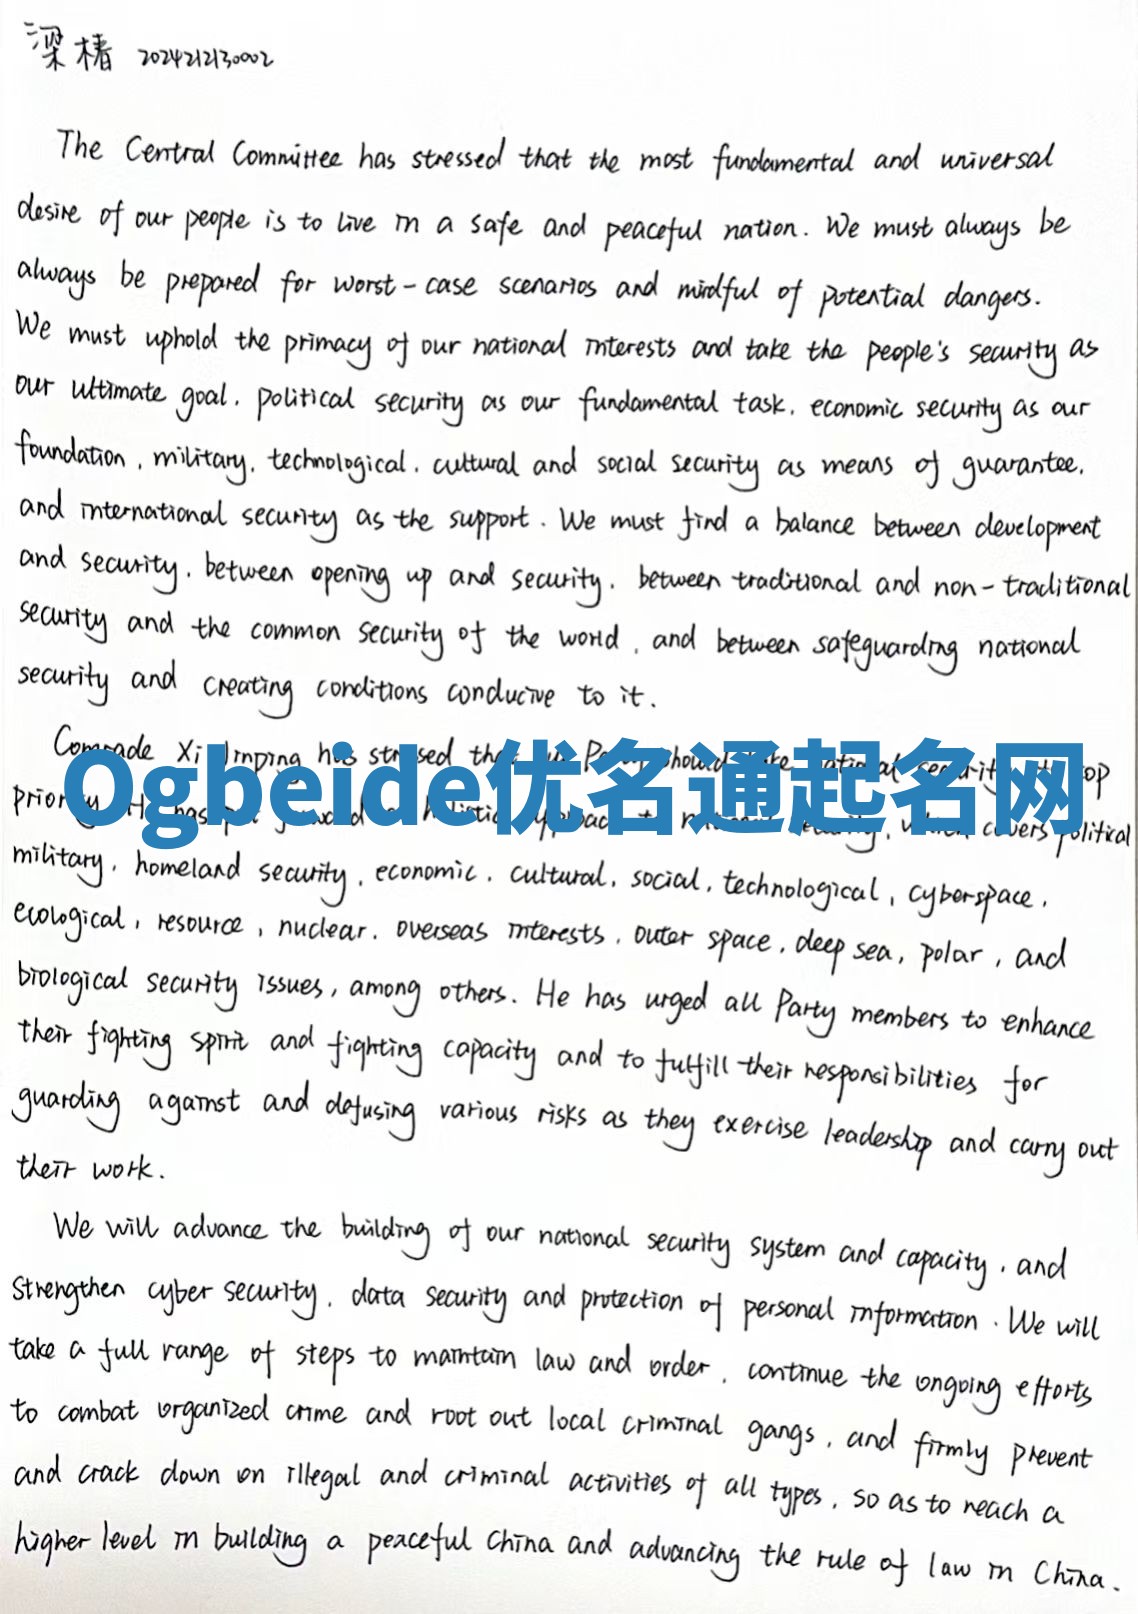 梁椿 2024212130002
The Central Committee has stressed that the most fundamental and universal
desire of our people is to live in a safe and peaceful nation. We must always be
always be prepared for worst-case scenarios and mindful of potential dangers.
We must uphold the primacy of our national interests and take the people's security as
our ultimate goal, political security as our fundamental task, economic security as our
foundation, military, technological, cultural and social security as means of guarantee,
and international security as the support. We must find a balance between development
and security, between opening up and security, between traditional and non-traditional
security and the common security of the world, and between safeguarding national
security and creating conditions conducive to it.
Comrade Xi Jinping has stressed top
Ogbeide优名通起名网
priority. He has covers political
military, homeland security, economic, cultural, social, technological, cyberspace,
ecological, resource, nuclear, overseas interests, outer space, deep sea, polar, and
biological security issues, among others. He has urged all Party members to enhance
their fighting spirit and fighting capacity and to fulfill their responsibilities for
guarding against and defusing various risks as they exercise leadership and carry out
their work.
We will advance the building of our national security system and capacity, and
strengthen cyber security, data security and protection of personal information. We will
take a full range of steps to maintain law and order, continue the ongoing efforts
to combat organized crime and root out local criminal gangs, and firmly prevent
and crack down on illegal and criminal activities of all types, so as to reach a
higher level in building a peaceful China and advancing the rule of law in China.